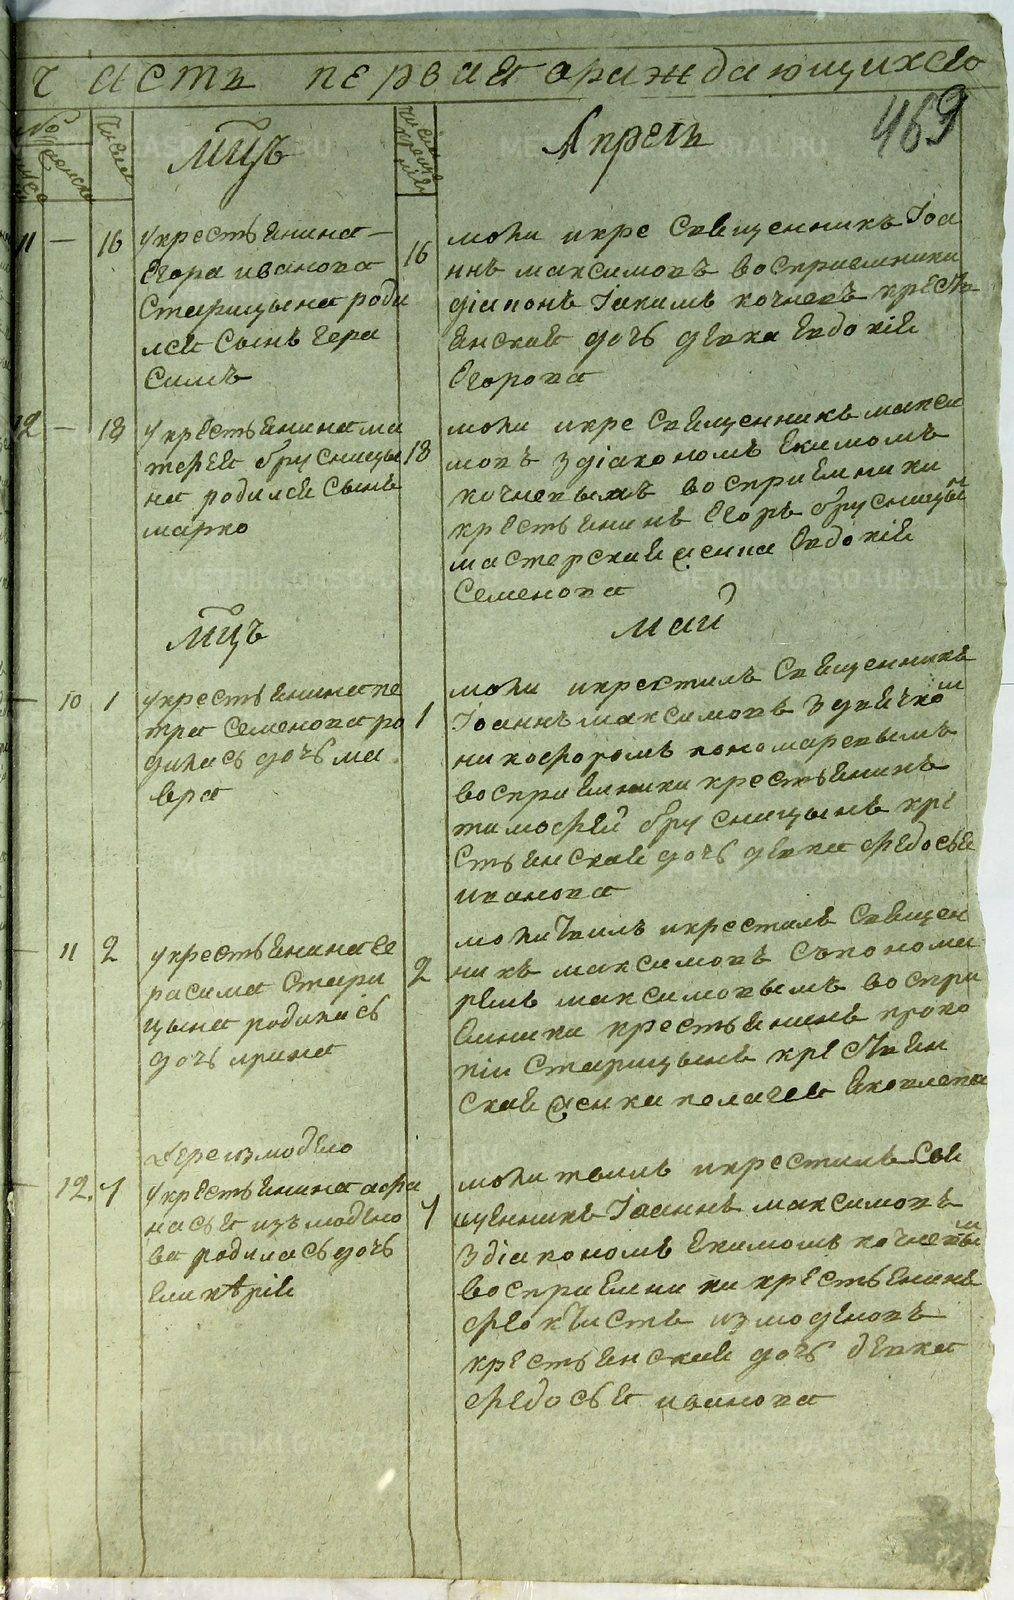 часть первая оражdающихсѧ
469
№
Числа
мцъ
Апрель
11 — 16
укрестьянина
Егора иванова
Старицына роди
лся Сынъ Гера
симъ
16
моли икре Священникъ Іоа
ннъ максимовъ воспріемники
діаконъ Іакимъ кочневъ крестъ
янская дочь девка Евдокія
Егорова
12 — 18
укрестьянина ма
тфея брусницы
на родился Сынъ
марко
18
моли икре Священникъ макси
мовъ здіакономъ Екимомъ
кочневымъ воспріемники
крестьянинъ Егоръ брусницынъ
мастерская женка Евдокія
Семенова
мцъ
маи
10 1
укрестьянина пе
тра Семенова ро
дилась дочь ма
вра
1
моли икрестилъ Священникъ
Іоаннъ максимовъ здьячкомъ
никифоромъ пономаревымъ
воспріемники крестьянинъ
тимофей брусницынъ кре
стьянская дочь девка федосья
иванова
11 2
укрестьянина Ге
расима Стари
цына родилась
дочь ирина
2
молитвилъ икрестилъ Священ
никъ максимовъ Съпонома
ремъ максимовымъ воспри
емники крестьянинъ проко
піи Старицынъ крестьян
ская женка пелагея
дереизмодено
12. 7
укрестьянина афа
насья измодено
ва родилась дочь
гликѣрія
7
молитвилъ икрестилъ Свя
щенникъ Іоаннъ максимовъ
здіакономъ Екимомъ кочневымъ
воспріемники крестьянинъ
феоктистъ измоденовъ
крестьянская дочь девка
федосья иванова